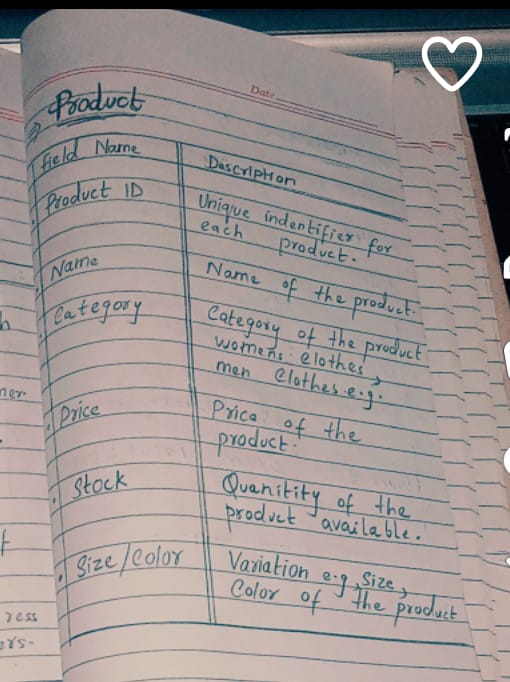 Date
⇒ Product
Field Name Description
Product ID Unique indentifier for
each product.
Name Name of the product.
Category Category of the product
womens clothes,
men Clothes e.g.
Price Price of the
product.
Stock Quanitity of the
product available.
Size/Color Variation e.g, Size,
Color of the product
ress